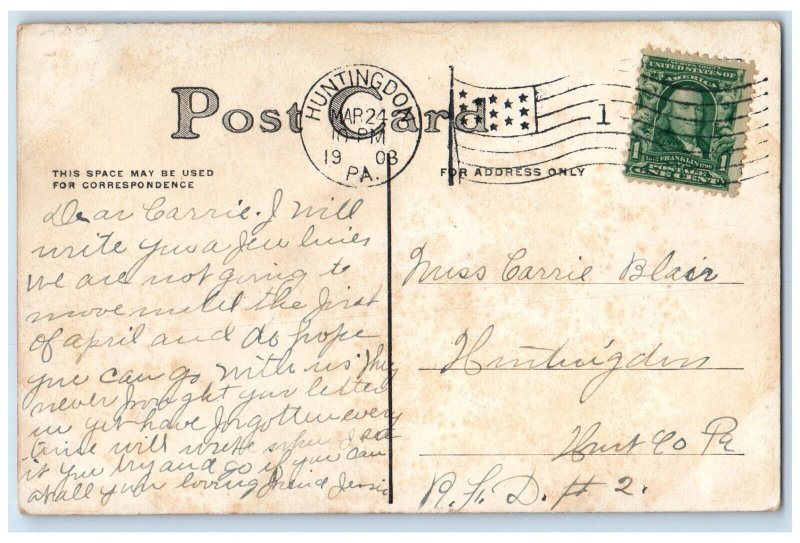 Post Card
HUNTINGDON
MAR 24
10 PM
1908
PA.
1
UNITED STATES OF
AMERICA
1 FRANKLIN 1
POSTAGE
ONE CENT
THIS SPACE MAY BE USED
FOR CORRESPONDENCE
FOR ADDRESS ONLY
Dear Carrie. I will
write you a few lines
we are not going to
move until the first
of april and do hope
you can go with us. they
never brought your letter
in yet have forgotten every
time will write when I see
it you try and go if you can
at all your loving friend Jessie
Miss Carrie Blair
Huntingdon
Hunt Co Pa
R.F.D. # 2.